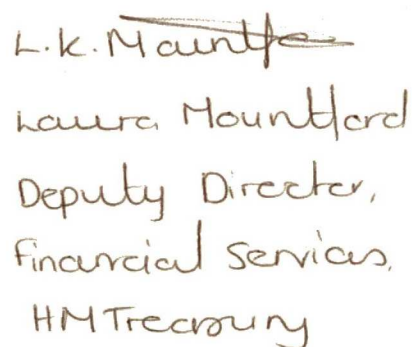 L.K. Mountfo
Laura Mountford
Deputy Director,
Financial Services,
HM Treasury